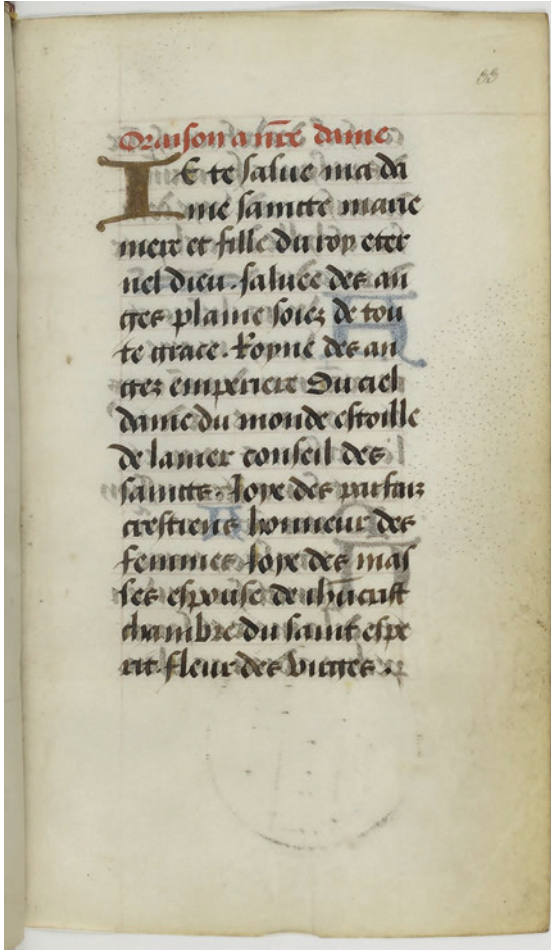 33
Oraison a nr̃e dame
IE te salue ma da
me saincte marie
mere et fille du roy eter
nel dieu. saluee des an
ges plaine soiez de tou
te grace. Royne des an
gez emperiere Du ciel
dame du monde estoille
de lamer conseil des
saincts. Joye des parfaiz
crestiens honneur des
femmes Joye des mas
les espouse de ihũcrist
chambre du saint espe
rit. fleur des virges.